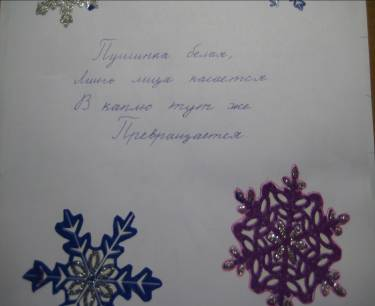 Пушинка белая,
Лишь лица касается
В каплю тут же
Превращается